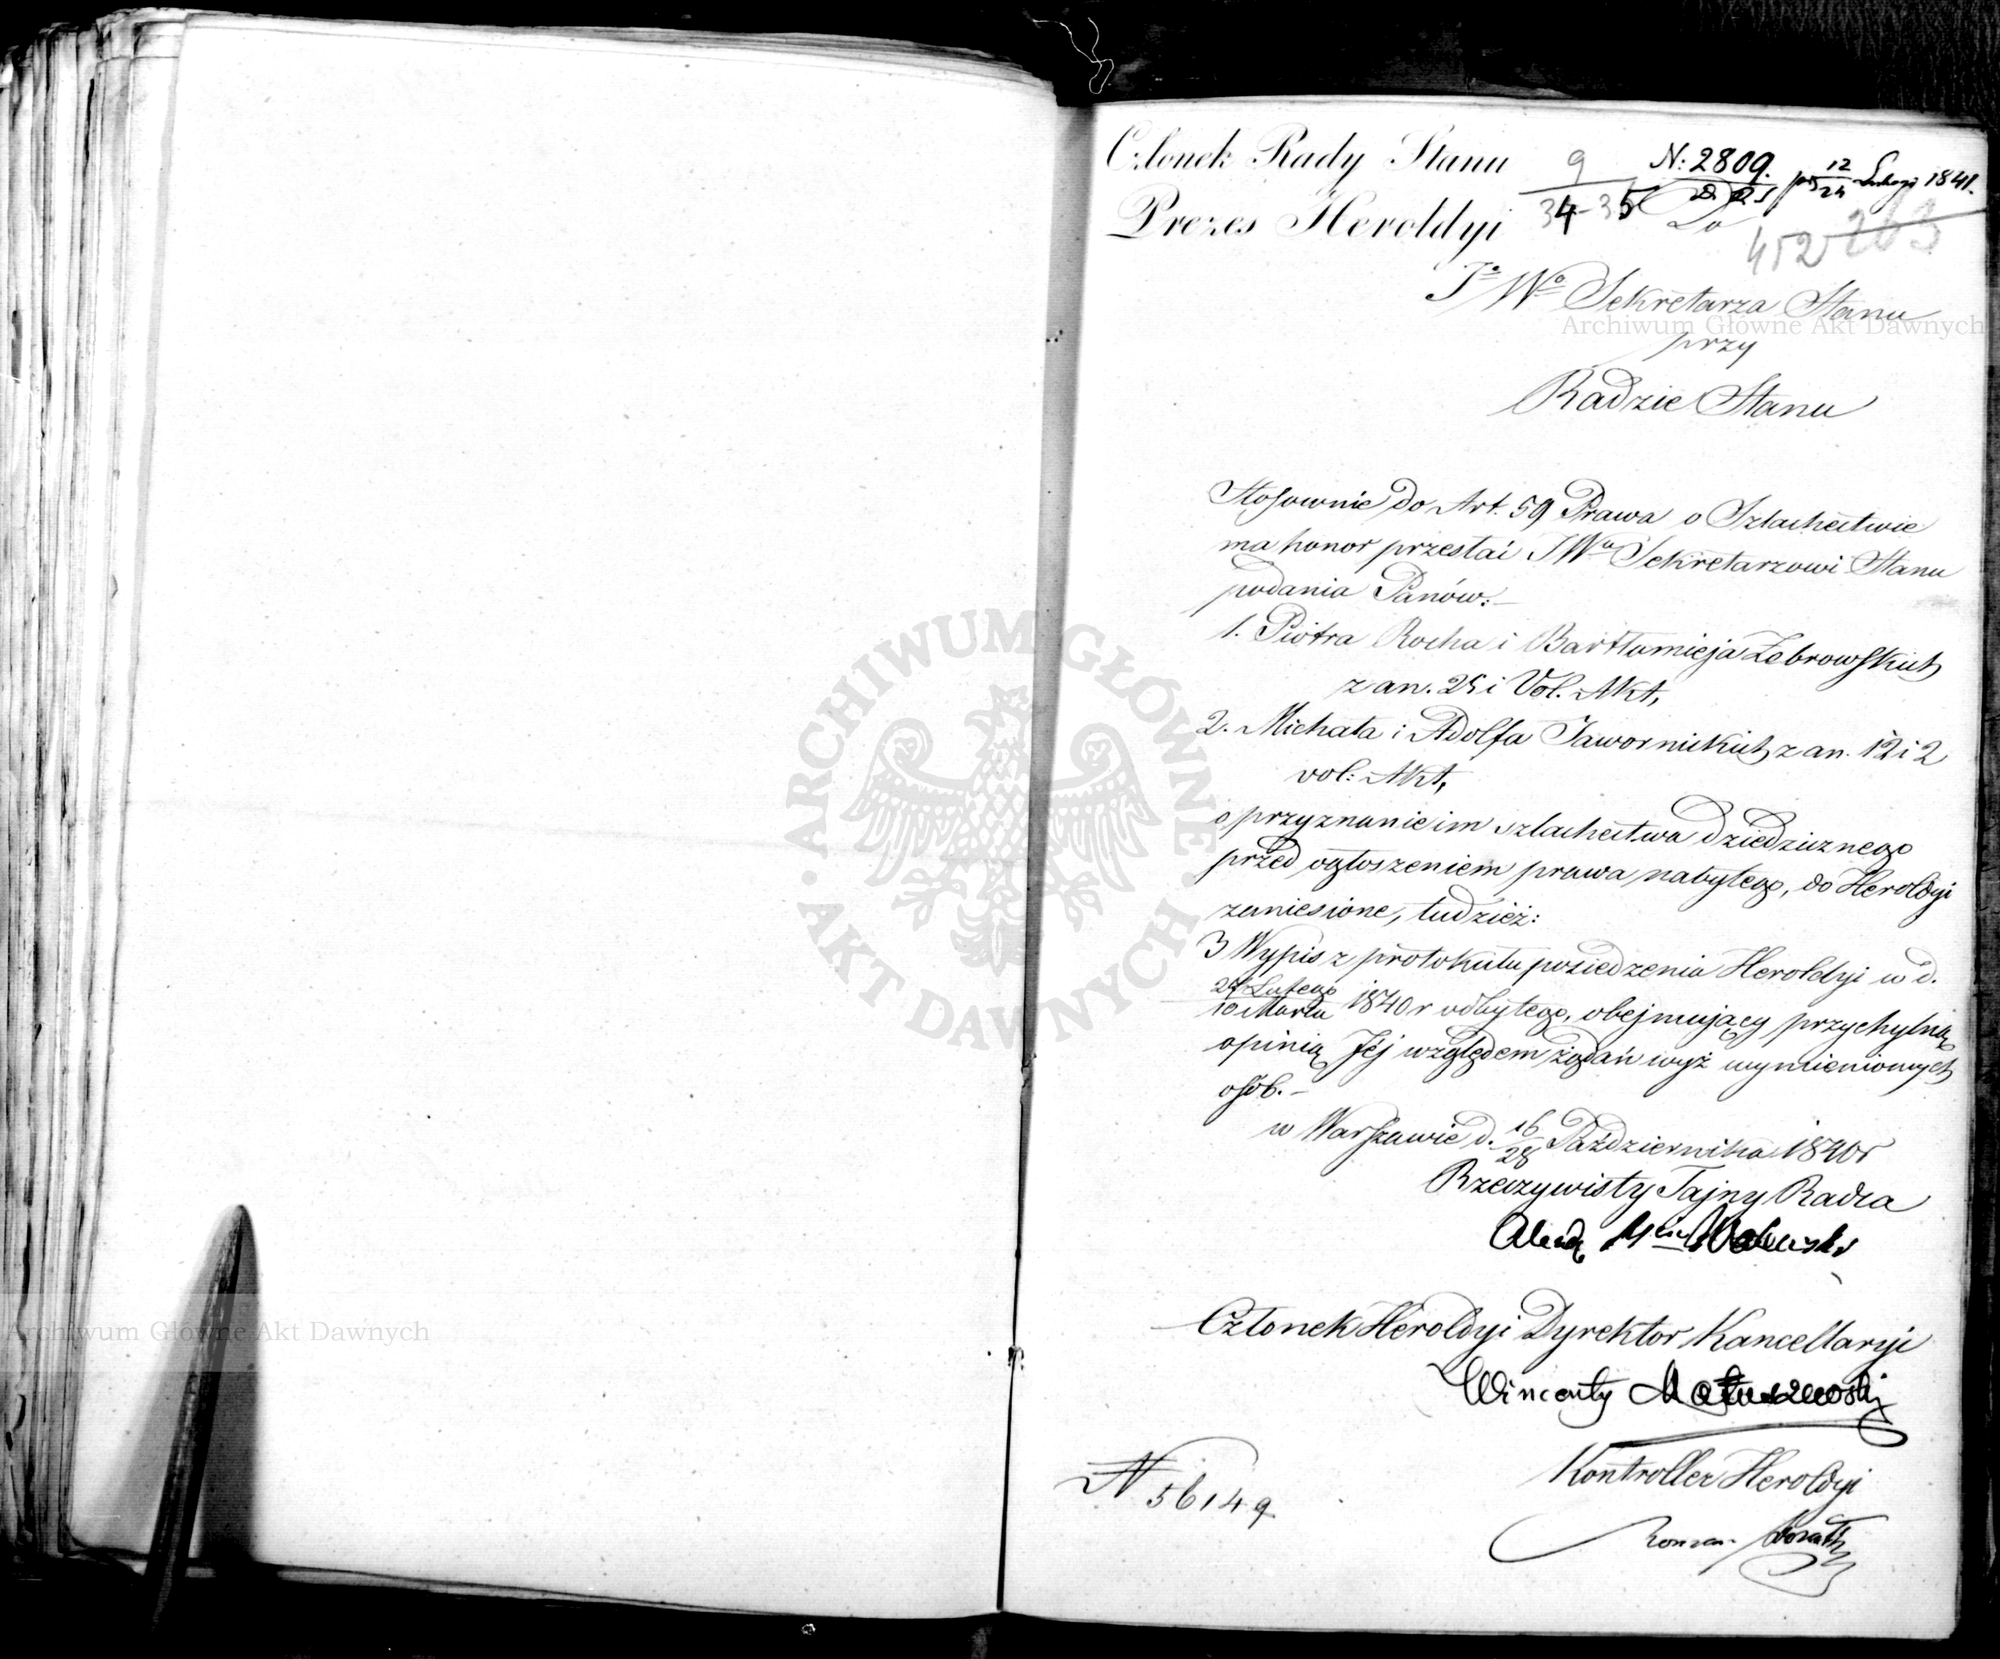 Członek Rady Stanu
Prezes Heroldyi
9
34-35
N: 2809.
12
24
1841.
Do
452
203
Jº Wº Sekretarza Stanu
przy
Radzie Stanu
Stosownie do Art. 59 Prawa o Szlachectwie
ma honor przesłać JWu Sekretarzowi Stanu
podania Panów:—
1. Piotra Rocha i Bartłomieja Żebrowskich
z an. 25 i Vol. Akt,
2. Michała i Adolfa Jawornickich z an. 12 i 2
vol: Akt,
o przyznanie im szlachectwa dziedzicznego
przed ogłoszeniem prawa nabytego, do Heroldyi
zaniesione, tudzież:
3 Wypis z protokułu posiedzenia Heroldyi w d.
27 Lutego
10 Marca 1840 r odbytego, obejmujący przychylną
opinią Jéj względem żądań wyż wymienionych
osób.—
w Warszawie d. 16/28 Października 1840 r
Rzeczywisty Tajny Radca
Członek Heroldyi Dyrektor Kancellaryi
Wincenty Matuszewski
Kontroller Heroldyi
Roman
N 56149
Archiwum Główne Akt Dawnych
Archiwum Główne Akt Dawnych
ARCHIWUM GŁÓWNE
AKT DAWNYCH